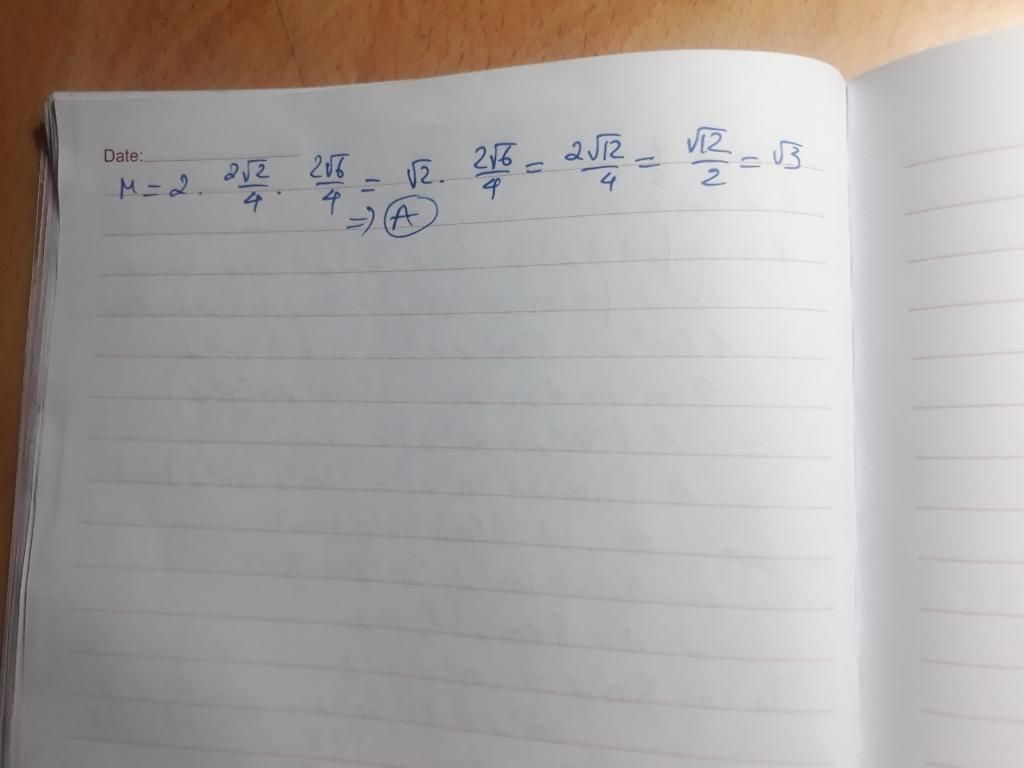 Date:
M = 2 . 2√2/4 . 2√6/4 = √2 . 2√6/4 = 2√12/4 = √12/2 = √3
=> A